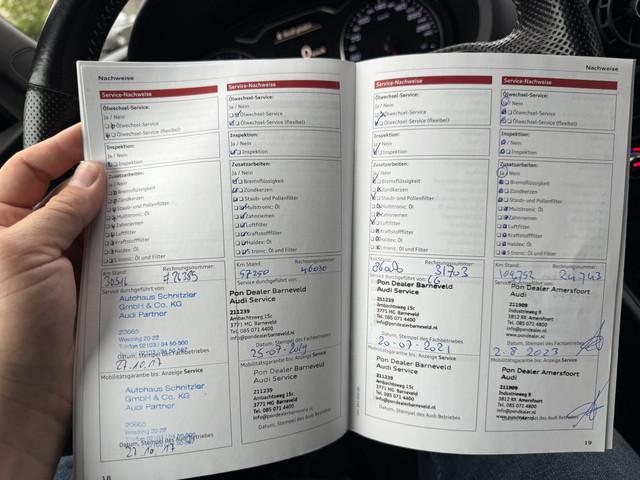 Nachweise
Service-Nachweise
Ölwechsel-Service:
Ja / Nein
Ölwechsel-Service
Ölwechsel-Service (flexibel)
Inspektion:
Ja / Nein
Inspektion
Zusatzarbeiten:
Ja / Nein
Bremsflüssigkeit
Zündkerzen
Staub- und Pollenfilter
Multitronic: Öl
Zahnriemen
Luftfilter
Kraftstofffilter
Haldex: Öl
S tronic: Öl und Filter
Km Stand:
Rechnungsnummer:
Service durchgeführt von:
Autohaus Schnitzler
GmbH & Co. KG
Audi Partner
20665
Datum, Stempel des Fachbetriebes
27.10.17
Mobilitätsgarantie bis: Anzeige Service
Autohaus Schnitzler
GmbH & Co. KG
Audi Partner
20665
Datum, Stempel des Audi Betriebs
27 10 17
18
Service-Nachweise
Ölwechsel-Service:
Ja / Nein
Ölwechsel-Service
Ölwechsel-Service (flexibel)
Inspektion:
Ja / Nein
Inspektion
Zusatzarbeiten:
Ja / Nein
Bremsflüssigkeit
Zündkerzen
Staub- und Pollenfilter
Multitronic: Öl
Zahnriemen
Luftfilter
Kraftstofffilter
Haldex: Öl
S tronic: Öl und Filter
Km Stand:
Rechnungsnummer:
57250
46030
Service durchgeführt von:
Pon Dealer Barneveld
Audi Service
211239
Ambachtsweg 15c
3771 MG Barneveld
Tel. 085 071 4400
info@pondealerbarneveld.nl
Datum, Stempel des Fachbetriebes
25-07-2019
Mobilitätsgarantie bis: Anzeige Service
Pon Dealer Barneveld
Audi Service
211239
Ambachtsweg 15c
3771 MG Barneveld
Tel. 085 071 4400
info@pondealerbarneveld.nl
Datum, Stempel des Audi Betriebs
Service-Nachweise
Ölwechsel-Service:
Ja / Nein
Ölwechsel-Service
Ölwechsel-Service (flexibel)
Inspektion:
Ja / Nein
Inspektion
Zusatzarbeiten:
Ja / Nein
Bremsflüssigkeit
Zündkerzen
Staub- und Pollenfilter
Multitronic: Öl
Zahnriemen
Luftfilter
Kraftstofffilter
Haldex: Öl
S tronic: Öl und Filter
Km Stand:
Rechnungsnummer:
31703
Service durchgeführt von:
Pon Dealer Barneveld
Audi Service
211239
Ambachtsweg 15c
3771 MG Barneveld
Tel. 085 071 4400
info@pondealerbarneveld.nl
Datum, Stempel des Fachbetriebes
20-07-2021
Mobilitätsgarantie bis: Anzeige Service
Pon Dealer Barneveld
Audi Service
211239
Ambachtsweg 15c
3771 MG Barneveld
Tel. 085 071 4400
info@pondealerbarneveld.nl
Datum, Stempel des Audi Betriebs
Nachweise
Service-Nachweise
Ölwechsel-Service:
Ja / Nein
Ölwechsel-Service
Ölwechsel-Service (flexibel)
Inspektion:
Ja / Nein
Inspektion
Zusatzarbeiten:
Ja / Nein
Bremsflüssigkeit
Zündkerzen
Staub- und Pollenfilter
Multitronic: Öl
Zahnriemen
Luftfilter
Kraftstofffilter
Haldex: Öl
S tronic: Öl und Filter
Km Stand:
Rechnungsnummer:
109752
24743
Service durchgeführt von:
Pon Dealer Amersfoort
Audi
211909
Industrieweg 9
3812 RK Amersfoort
Tel. 085 071 4800
info@pondealer.nl
www.pondealer.nl
Datum, Stempel des Fachbetriebes
2.8.2023
Mobilitätsgarantie bis: Anzeige Service
Pon Dealer Amersfoort
Audi
211909
Industrieweg 9
3812 RK Amersfoort
Tel. 085 071 4800
info@pondealer.nl
www.pondealer.nl
Datum, Stempel des Audi Betriebs
19